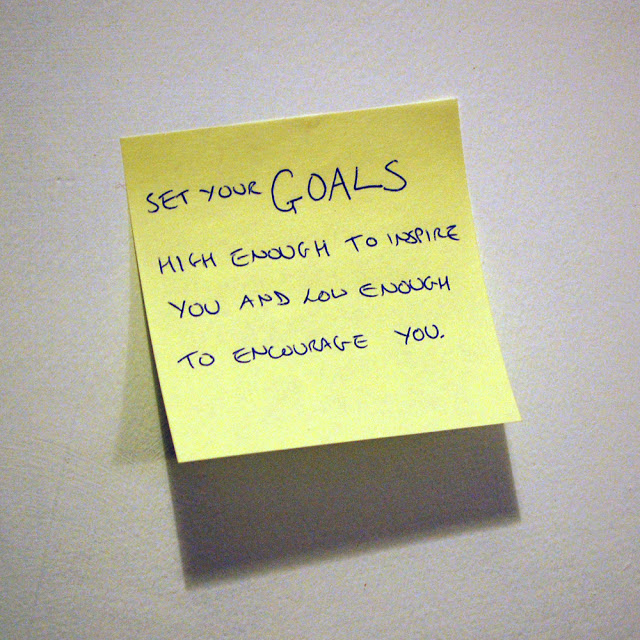 SET YOUR GOALS
HIGH ENOUGH TO INSPIRE
YOU AND LOW ENOUGH
TO ENCOURAGE YOU.